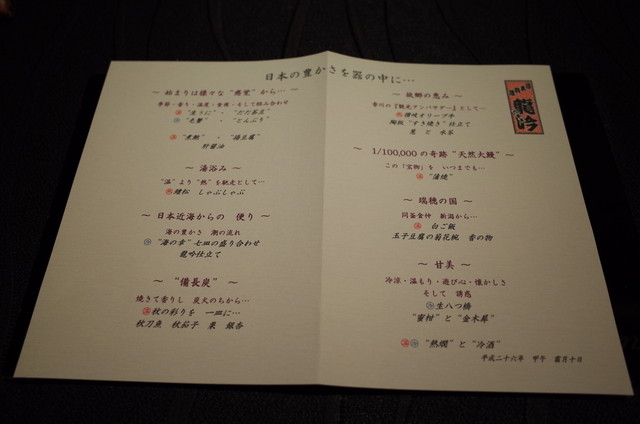 日本の豊かさを器の中に…
～ 始まりは様々な “感覚” から… ～
季節・香り・温度・食感・そして組み合わせ
温 “生うに” ・ “だだ茶豆”
冷 “毛蟹” ・ “とんぶり”
温 “煮鮑” ・ “湯豆腐”
肝醤油
～ 湯浴み ～
“温” より “熱” を馳走として…
鱧松 しゃぶしゃぶ
～ 日本近海からの 便り ～
海の豊かさ 潮の流れ
冷 “海の幸” 七皿の盛り合わせ
龍吟仕立て
～ “備長炭” ～
焼きて香りし 炭火のちから…
温 秋の彩りを 一皿に…
秋刀魚 秋茄子 栗 銀杏
龍吟
～ 故郷の恵み ～
香川の『観光アンバサダー』として…
温 讃岐オリーブ牛
陶板 “すき焼き” 仕立て
葱 と 水茎
～ 1/100,000 の奇跡 “天然大鰻” ～
この「宝物」を いつまでも…
温 “蒲焼”
～ 瑞穂の国 ～
同釜食仲 新潟から…
温 白ご飯
玉子豆腐の菊花椀 香の物
～ 甘美 ～
冷涼・温もり・遊び心・懐かしさ
そして 誘惑
冷 生八つ橋
“蜜柑” と “金木犀”
温 冷 “熱燗” と “冷酒”
平成二十六年 甲午 霜月十日